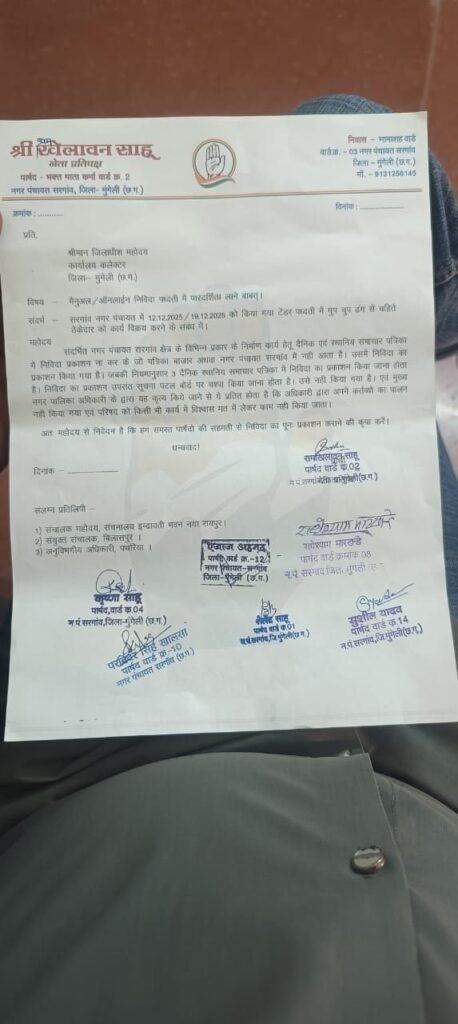 राम
श्री खेलावन साहू
नेता प्रतिपक्ष
पार्षद – भक्त माता कर्मा वार्ड क्र. 2
नगर पंचायत सरगांव, जिला- मुंगेली (छ.ग.)
निवास – भामाशाह वार्ड
वार्ड.क्र. – 03 नगर पंचायत सरगांव
जिला – मुंगेली (छ.ग.)
मो. – 9131258145
क्रमांक : ...........
दिनांक : ................
प्रति,
श्रीमान जिलाधीश महोदय
कार्यालय कलेक्टर
जिला- मुंगेली (छ.ग.)
विषय – मैनुअल/ऑनलाईन निविदा पध्दती में पारदर्शिता लाने बाबत्।
संदर्भ – सरगांव नगर पंचायत में 12.12.2025 / 19.12.2025 को किया गया टेंडर पध्दती में गुप चुप ढंग से चहिते
ठेकेदार को कार्य विक्रय करने के संबध में।
महोदय
संदर्भित नगर पंचायत सारगंव क्षेत्र के विभिन्न प्रकार के निर्माण कार्य हेतू दैनिक एवं स्थानिय समाचार पत्रिका
में निविदा प्रकाशन ना कर के जो पत्रिका बाजार अथवा नगर पंचायत सरगांव में नही आता है। उसमें निविदा का
प्रकाशन किया गया है। जबकी नियमानुसार 3 दैनिक स्थानिय समाचार पत्रिका में निविदा का प्रकाशन किया जाना होता
है। निविदा का प्रकाशन उपरांत सूचना पटल बोर्ड पर चश्पा किया जाना होता है। उसे नही किया गया है। एवं मुख्य
नगर पालिका अधिकारी के द्वारा यह कृत्य किये जाने से ये प्रतित होता है कि अधिकारी द्वारा अपने कर्तव्यो का पालन
नही किया गया एवं परिषद को किसी भी कार्य में विश्वास मत में लेकर काम नही किया जाता।
अतः महोदय से निवेदन है कि हम समस्त पार्षदो की सहमती से निविदा का पुनः प्रकाशन कराने की कृपा करें।
धन्यवाद!
दिनांक
रामखिलावन साहू
पार्षद वार्ड क्र.02
न.पं.सरगांव
संलग्न प्रतिलिपी –
1) संचालक महोदय, संचनालय इन्द्रावती भवन नया रायपुर।
2) संयुक्त संचालक, बिलासपुर ।
3) अनुविभगीय अधिकारी, पथरिया ।
एजाज अहमद
पार्षद वार्ड क्र.-12
नगर पंचायत-सरगांव
जिला-मुंगेली (छ.ग.)
राधेश्याम मारखण्डे
पार्षद वार्ड क्रमांक 08
न.पं. सरगांव जिला.
कृष्णा साहू
पार्षद,वार्ड क्र.04
न.पं सरगांव,जि.मुंगेली(छ.ग.)
पार्षद वार्ड क्र.01
न.पं.सरगांव,जि.मुंगेली(छ.ग.)
सुशील यादव
पार्षद वार्ड क्र.14
न.पं.सरगांव,जि.मुंगेली(छ.ग.)
परविंदर सिंह खालसा
पार्षद वार्ड क्र.-10
नगर पंचायत सरगांव (छ.ग.)